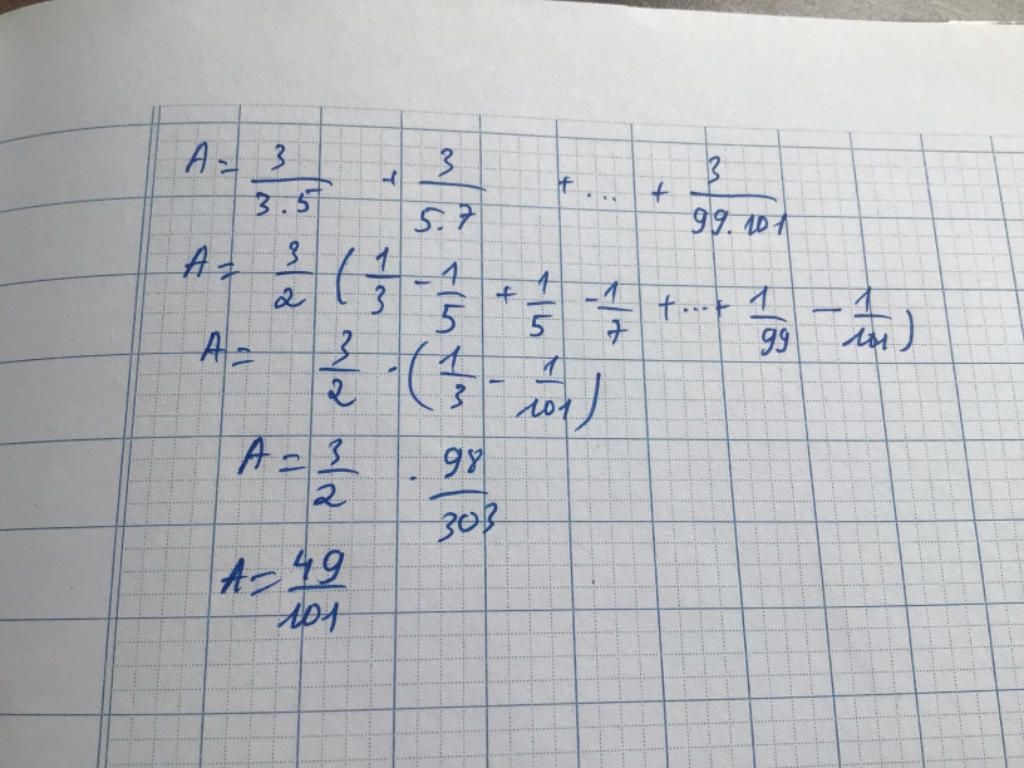 A = 3/3.5 + 3/5.7 + ... + 3/99.101
A = 3/2 (1/3 - 1/5 + 1/5 - 1/7 + ... + 1/99 - 1/101)
A = 3/2 . (1/3 - 1/101)
A = 3/2 . 98/303
A = 49/101